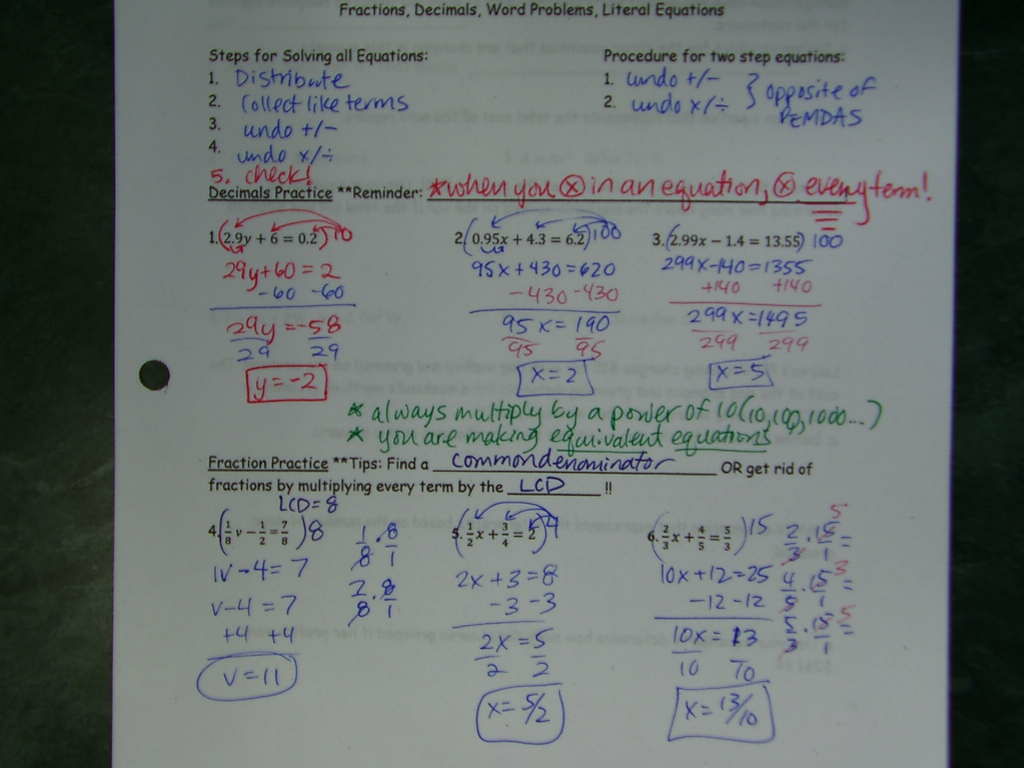 Fractions, Decimals, Word Problems, Literal Equations
Steps for Solving all Equations:
1. Distribute
2. Collect like terms
3. undo +/-
4. undo x/÷
5. check!
Procedure for two step equations:
1. undo +/-
2. undo x/÷
} opposite of
PEMDAS
Decimals Practice **Reminder: *when you ⓧ in an equation, ⓧ every term!
1. (2.9y + 6 = 0.2) 10
29y+60 = 2
-60 -60
29y = -58
29 29
y = -2
2. (0.95x + 4.3 = 6.2) 100
95x + 430 = 620
-430 -430
95x = 190
95 95
x = 2
3. (2.99x – 1.4 = 13.55) 100
299x-140 = 1355
+140 +140
299x = 1495
299 299
x = 5
* always multiply by a power of 10 (10, 100, 1000...)
* you are making equivalent equations
Fraction Practice **Tips: Find a common denominator OR get rid of
fractions by multiplying every term by the LCD !!
LCD = 8
4. (1/8 v – 1/2 = 7/8) 8
1v - 4 = 7
v - 4 = 7
+4 +4
v = 11
1/8 · 8/1
2/8 · 8/1
5. (1/2 x + 3/4 = 2) 4
2x + 3 = 8
-3 -3
2x = 5
2 2
x = 5/2
6. (2/3 x + 4/5 = 5/3) 15
10x + 12 = 25
-12 -12
10x = 13
10 10
x = 13/10
2/3 · 15/1 = 5
4/5 · 15/1 = 3
5/3 · 15/1 = 5